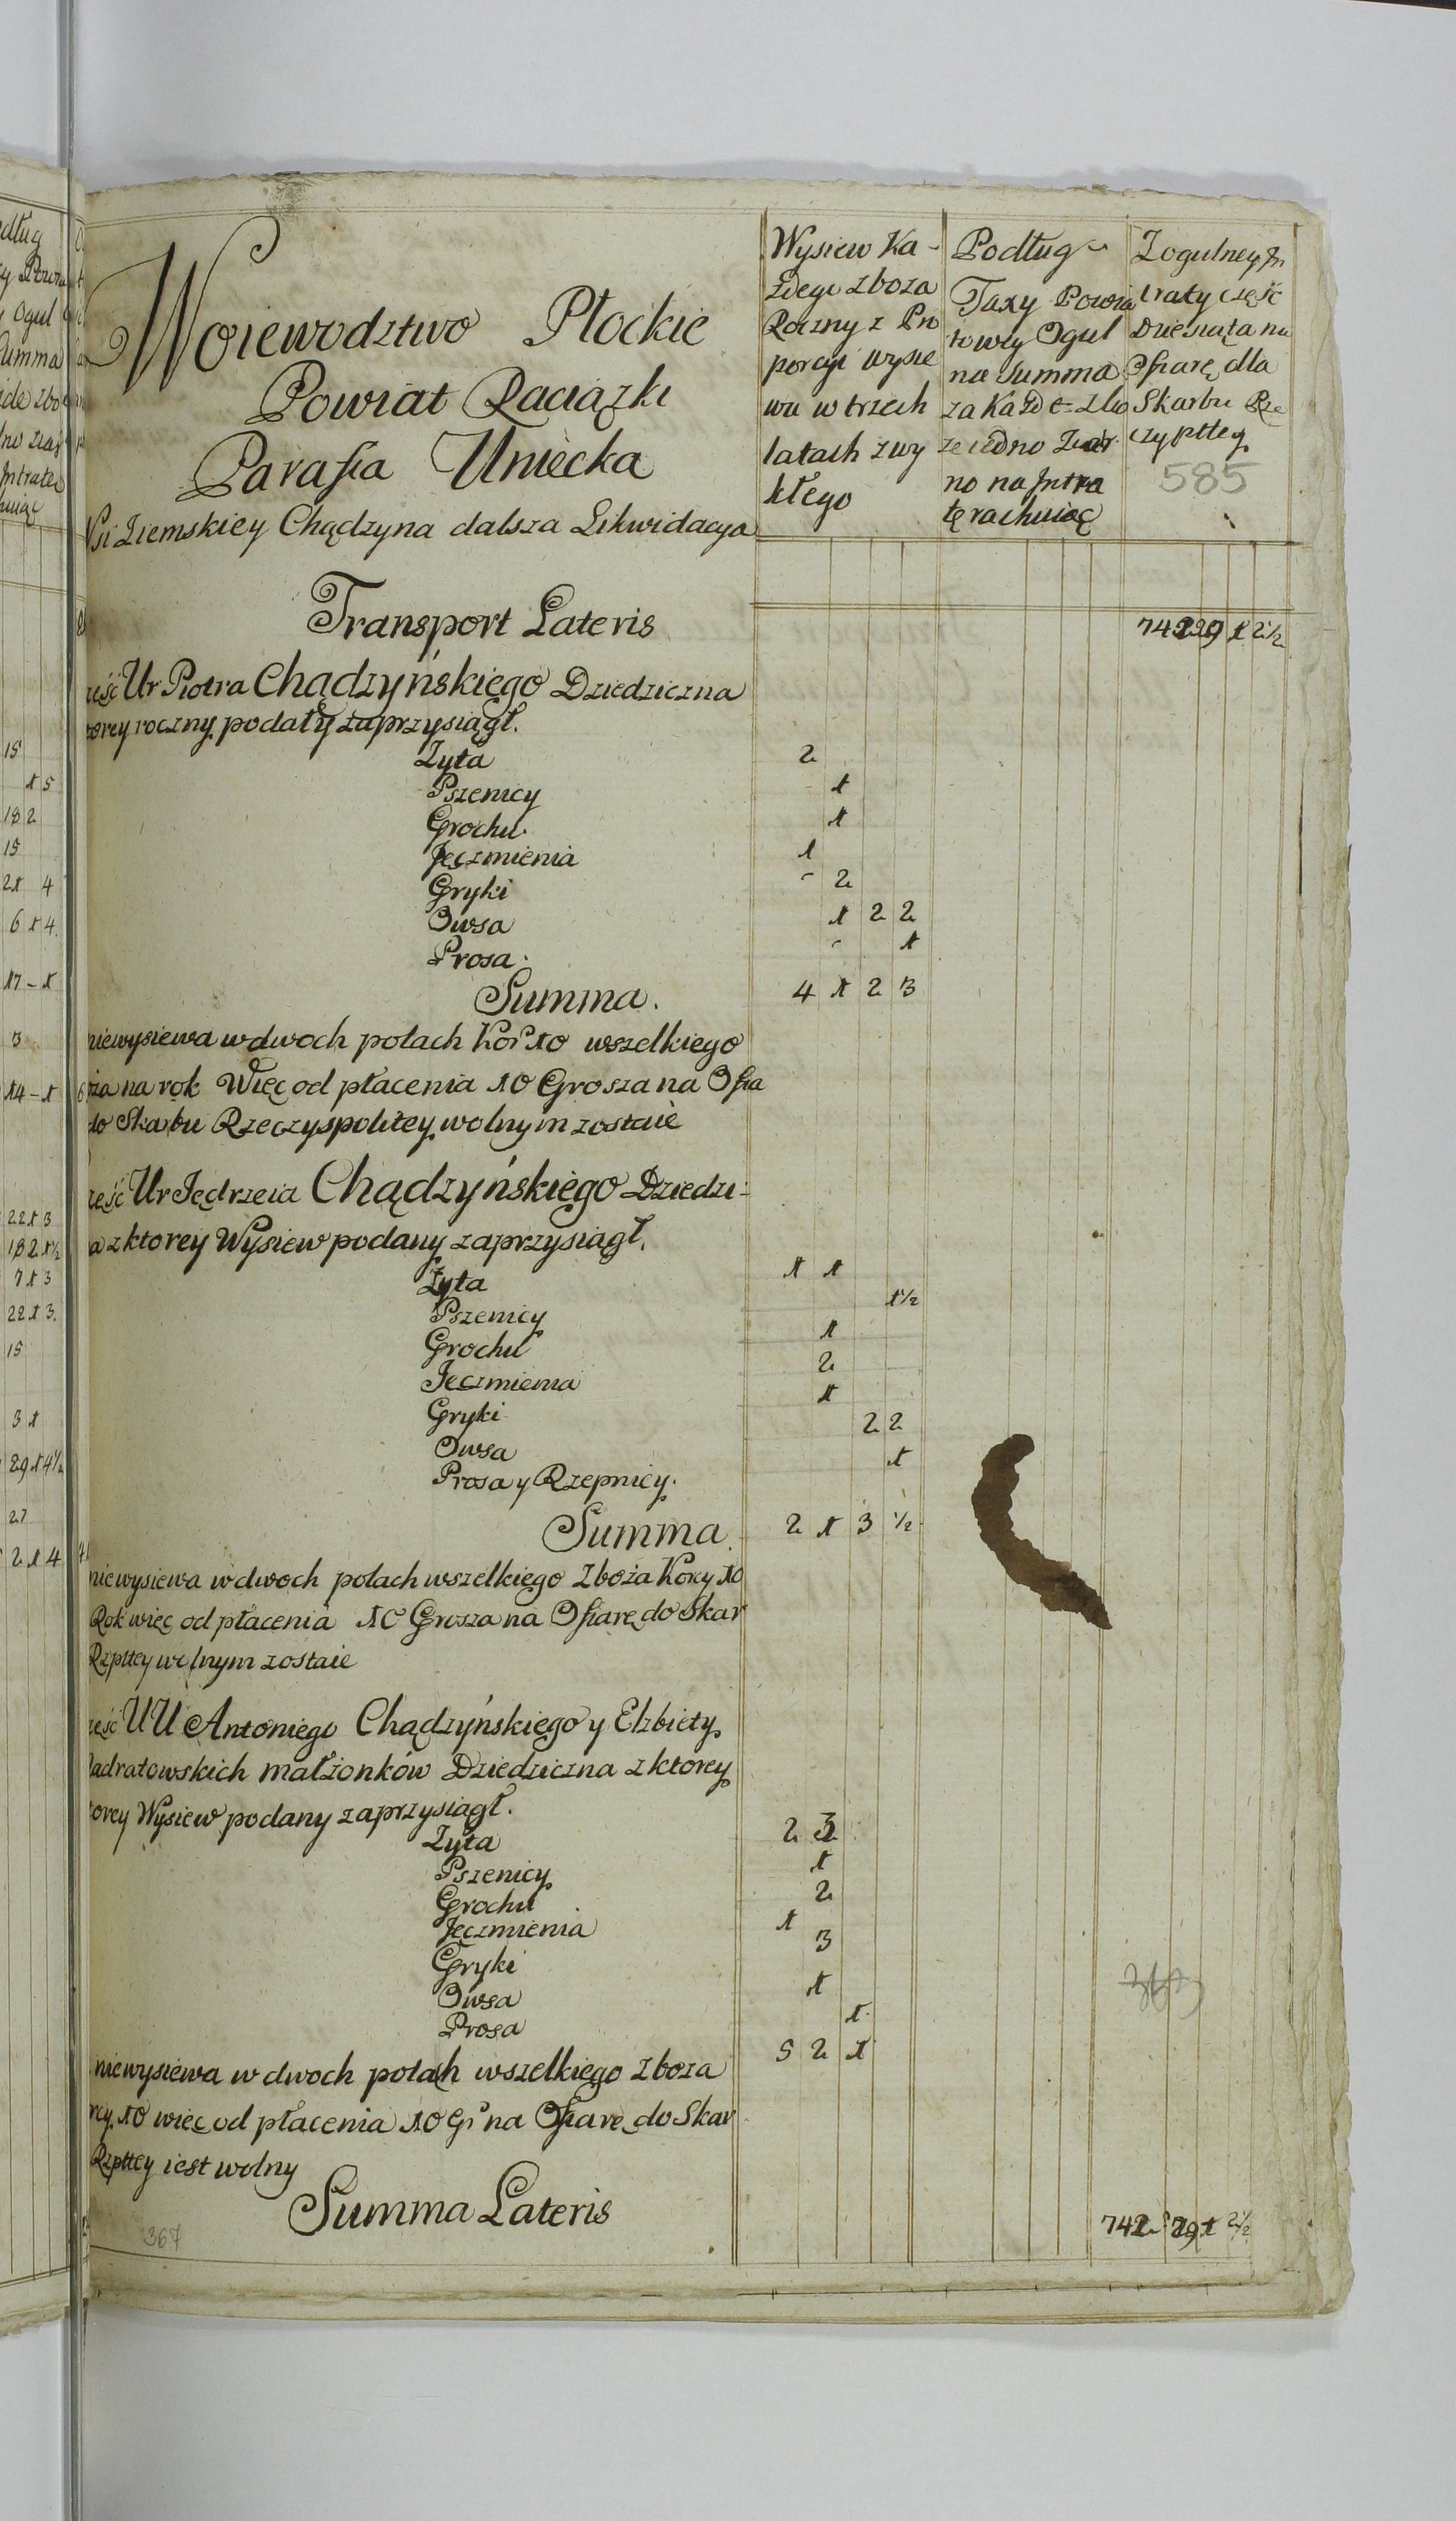 Woiewodztwo Płockie
Powiat Raciązki
Parafia Uniecka
Wsi Ziemskiey Chądzyna dalsza Likwidacya
Wysiew Ka-
żdego zboza
Roczny z Pro
porcyi wysie
wu w trzech
latach zwy
kłego
Podług
Taxy Powia
towey Ogul
na Summa
za Każde zbo
ze iedno Ziar
no na Intra
tę rachuiąc
Zogulney In
traty część
Dziesiąta na
Ofiarę dla
Skarbu Rze
czypttey
585
Transport Lateris
zęść Ur Piotra Chądzyńskiego Dziedziczna
torey roczny podały zaprzysiągł.
Zyta 2
Pszenicy 1
Grochu 1
Jęczmienia 1
Gryki - 2
Owsa 1 2 2
Prosa - 1
Summa. 4 1 2 3
niewysiewa w dwoch polach Kor 10 wszelkiego
oża na rok Więc od płacenia 10 Grosza na Ofia
do Skarbu Rzeczyspolitey wolnym zostaie
zęść Ur Jędrzeia Chądzyńskiego Dziedzi-
a z ktorey Wysiew podany zaprzysiągł.
Żyta 1 1
Pszenicy 1½
Grochu 1
Jęczmienia 2
Gryki 1
Owsa 2 2
Prosa y Rzepnicy. 1
Summa 2 1 3 ½
niewysiewa w dwoch polach wszelkiego Zboża Korcy 10
Rok więc od płacenia 10 Grosza na Ofiarę do Skar
Rzpttey wolnym zostaie
zęść UU Antoniego Chądzyńskiego y Elzbiety
Nadratowskich małżonków Dziedziczna z ktorey
torey Wysiew podany zaprzysiągł.
Zyta 2 3
Pszenicy 1
Grochu 2
Jęczmienia 1
Gryki 3
Owsa 1
Prosa 1
5 2 1
niewysiewa w dwoch polach wszelkiego zboza
rcy 10 więc od płacenia 10 Gr na Ofiarę do Skar
Rzpttey iest wolny
Summa Lateris
367